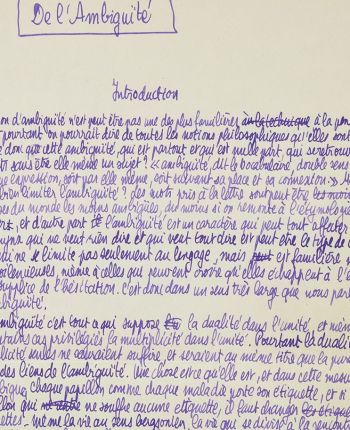 De l'Ambiguïté
Introduction
on d'ambiguïté n'est peut être pas une des plus familières à la technique à la pen
pourtant on pourrait dire de toutes les notions philosophiques qu'elles sont
donc que cette ambiguïté, qui est partout et qui est nulle part, qui se retrouve
sans être elle même un sujet? "L'ambiguïté, dit le vocabulaire, double sens
expression, soit par elle même, soit suivant sa place et sa connexion."
bien limiter l'ambiguïté? des mots pris à la lettre sont peut être les mots
du monde les moins ambigus, du moins si on remonte à l'étymologie
et d'autre part l'ambiguïté est un caractère qui peut tout affecter
qui ne veut rien dire et qui veut tout dire est peut être le type de
ne se limite pas seulement au langage, mais est familière
même à celles qui peuvent croire qu'elles échappent à l'
supplice de l'hésitation. C'est donc dans un sens très large que nous par
biguïté.
mbiguïté c'est tout ce qui suppose la dualité dans l'unité, et même
cas privilégiés la multiplicité dans l'unité. Pourtant la duali
licité seules ne sauraient suffire, et seraient au même titre que la pure
des liens de l'ambiguïté. Une chose est ce qu'elle est, et dans cette mesu
chaque papillon comme chaque maladie porte son étiquette, et si
llon qui ne souffre aucune étiquette, il faut changer les étique
ettes - même la vie au sens bergsonien, la vie qui se divise à la rencontre